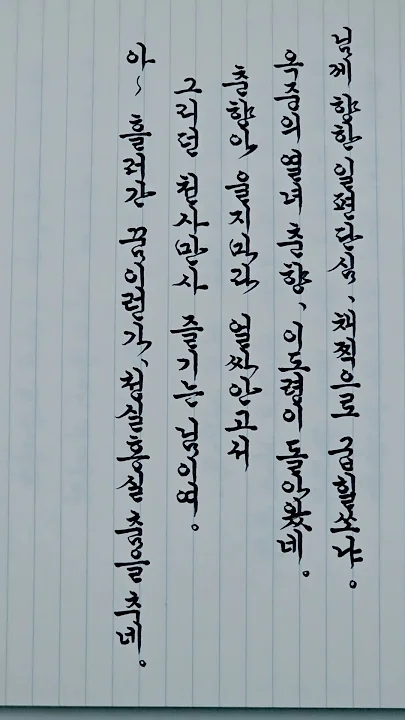 님께 향한 일편단심, 채찍으로 굽힐쏘냐.
옥중의 열녀 춘향, 이도령이 돌아왔네.
춘향아 울지마라 얼싸안고서
그리던 천사만사 즐기는 님의
아~ 흘러간 꿈이런가, 청실홍실 춤을 추네.